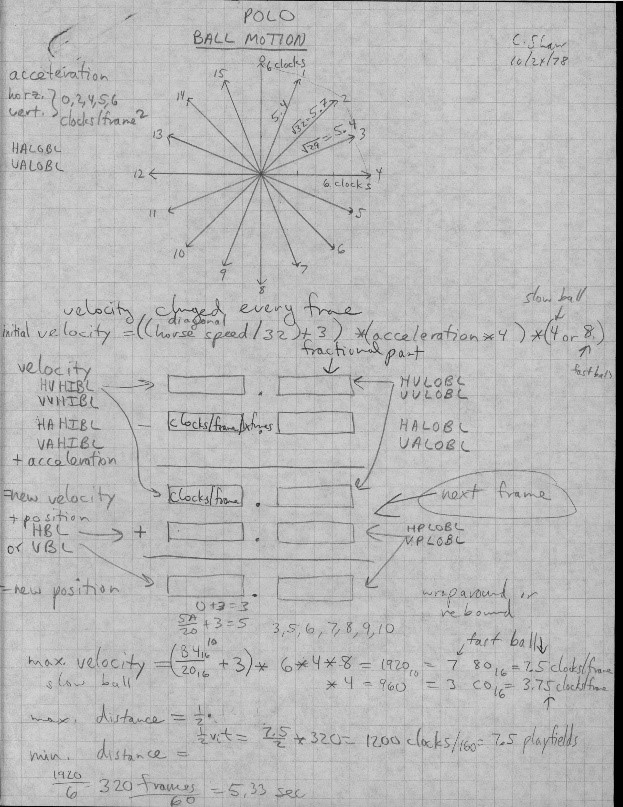 POLO
BALL MOTION
C. Shaw
10/24/78
acceleration
horz. } 0,2,4,5,6
vert. } clocks/frame²
HALOBL
VALOBL
6 clocks
1
2
3
4
5
6
7
8
9
10
11
12
13
14
15
5.4
√32=5.7
√29=5.4
6 clocks
velocity changed every frame
slow ball
diagonal
initial velocity = ((horse speed/32)+3) *(acceleration*4) *(4 or 8)
fast ball
fractional part
velocity
HVHIBL
VVHIBL
.
HVLOBL
VVLOBL
HAHIBL
VAHIBL
+ acceleration
clocks/frame
.
HALOBL
VALOBL
=new velocity
clocks/frame
.
next frame
+position
HBL
or VBL
+
.
HPLOBL
VPLOBL
=new position
.
wraparound or
rebound
0+3=3
5A/20 +3=5
3,5,6,7,8,9,10
fast ball
max. velocity = (B4₁₆/20₁₆ + 3)* 6*4*8 = 1920₁₀ = 7 80₁₆ = 7.5 clocks/frame
10
slow ball
*4 = 960 = 3 C0₁₆ = 3.75 clocks/frame
max. distance = ½.
½v·t = 7.5/2 *320= 1200 clocks/160= 7.5 playfields
min. distance =
1920/6 = 320 frames/60 = 5.33 sec